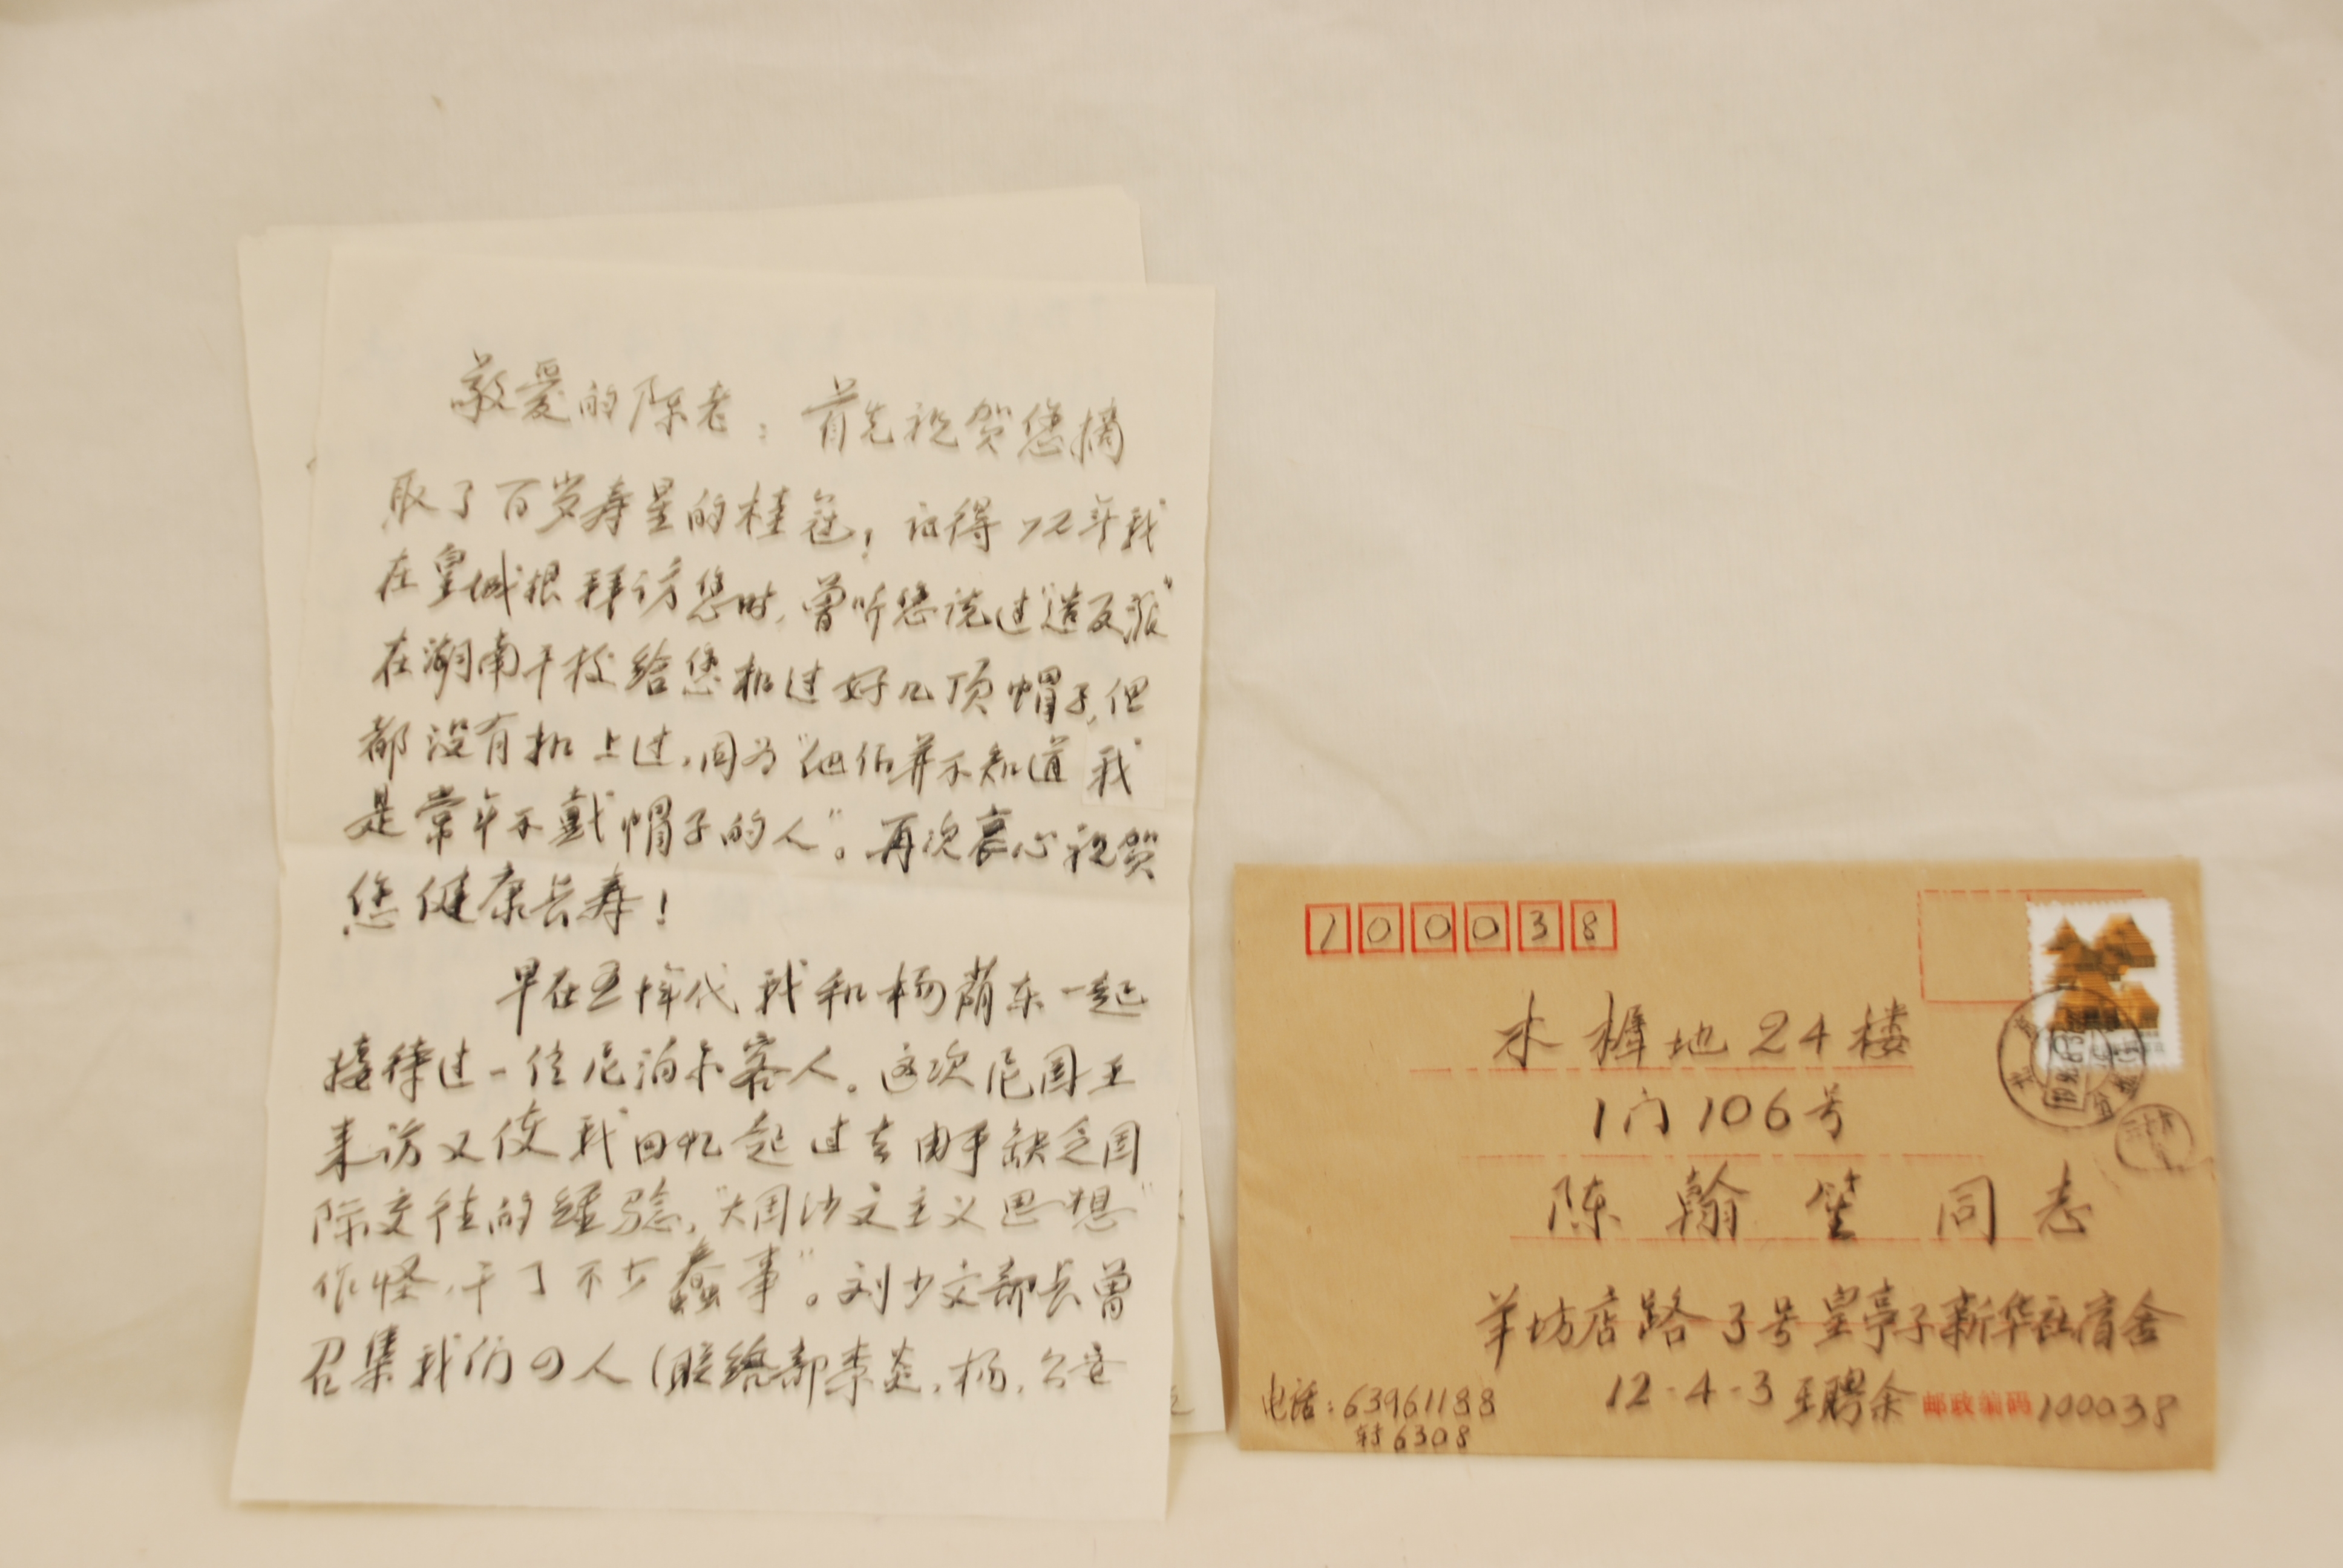 敬爱的陈老：首先祝贺您摘
取了百岁寿星的桂冠！记得72年我
在皇城根拜访您时，曾听您说过“造反派”
在湖南干校给您扣过好几顶帽子，但
都没有扣上过，因为“他们并不知道我
是常年不戴帽子的人”。再次衷心祝贺
您健康长寿！
早在五十年代我和杨荫东一起
接待过一位尼泊尔客人。这次尼国王
来访又使我回忆起过去由于缺乏国
际交往的经验，“大国沙文主义思想”
作怪，干了不少蠢事”。刘少文部长曾
召集我们四人（联络部李炎，杨，公安
100038
木樨地24楼
1门106号
陈翰笙同志
羊坊店路3号皇亭子新华社宿舍
12-4-3 王聘余 邮政编码 100038
电话：63961188
转6308
北京